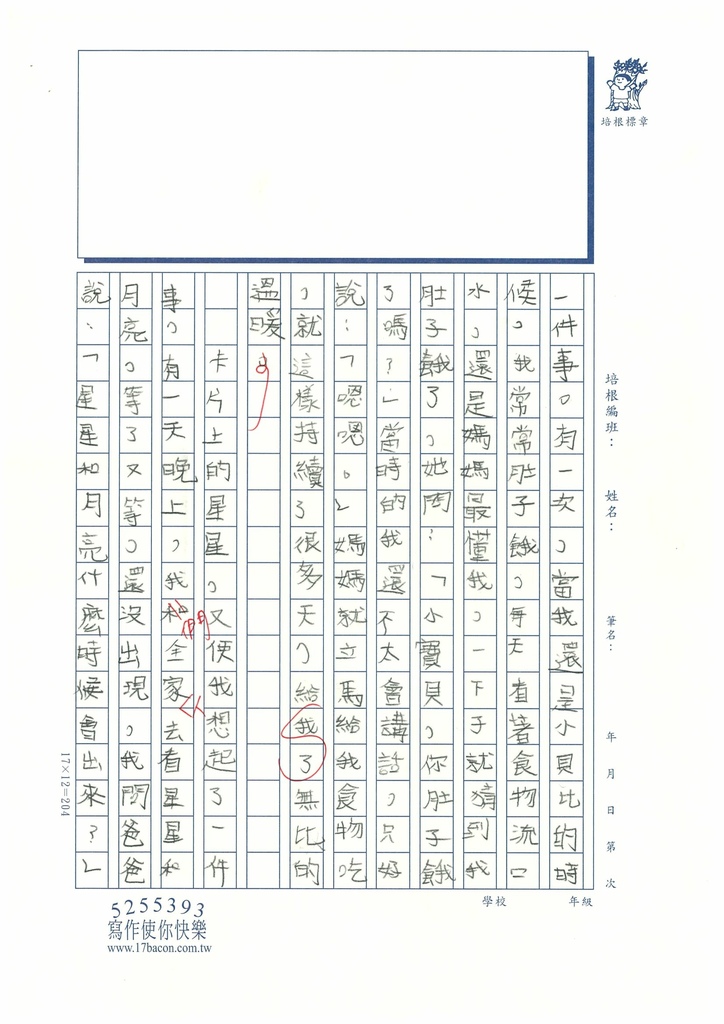 培根標章
培根編班：
姓名：
筆名：
年 月 日 第 次
學校
年級
一件事。有一次，當我還是小貝比的時
候，我常常肚子餓，每天看著食物流口
水，還是媽媽最懂我，一下子就猜到我
肚子餓了，她問：「小寶貝，你肚子餓
了嗎？」當時的我還不太會講話，只好
說：「嗯嗯。」媽媽就立馬給我食物吃
，就這樣持續了很多天，給我了無比的
溫暖。
卡片上的星星，又使我想起了一件
事，有一天晚上，我和全家去看星星和
他們
人
月亮，等了又等，還沒出現，我問爸爸
說：「星星和月亮什麼時候會出來？」
17×12=204
5255393
寫作使你快樂
www.17bacon.com.tw